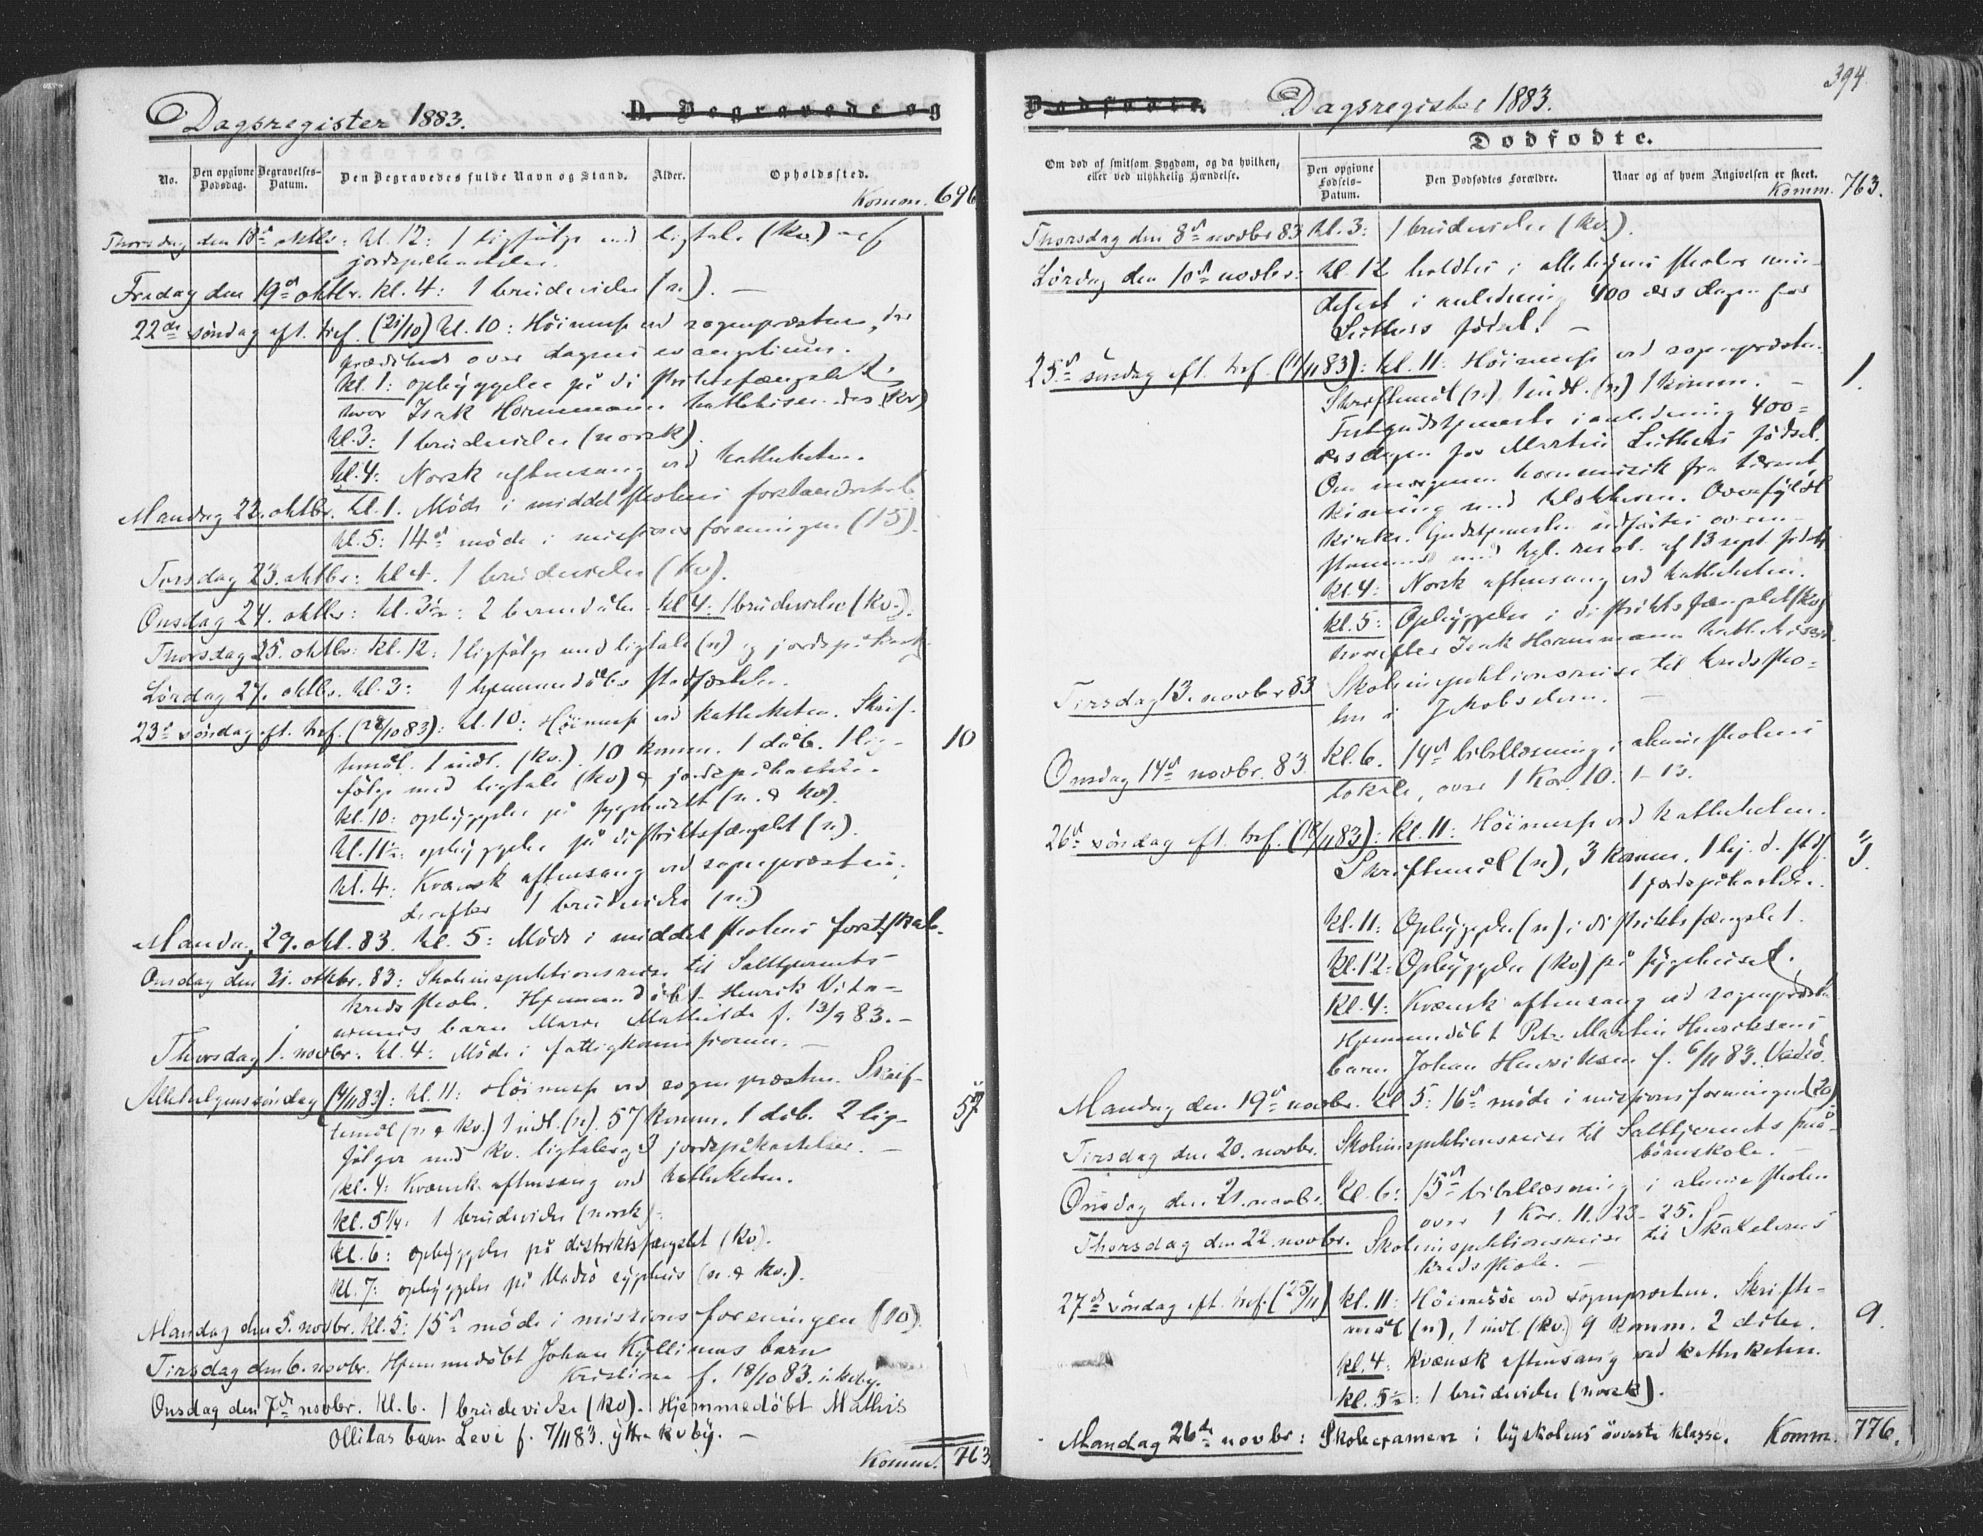 Dagsregister 1883.
D. Begravede og
No.
Den opgivne Dødsdag.
Begravelses-Datum.
Den Begravedes fulde Navn og Stand.
Alder.
Opholdssted.
Komm. 696
Thorsdag den 18de oktbr: kl. 12: 1 ligfølge med ligtale (kv.) og
jordspåkastelse.
Fredag den 19de oktbr. kl. 4: 1 brudevielse (n.). —
22de søndag eft. tref. (21/10) kl. 10: Høimesse ved sognepræsten, der
prædikede over dagens evangelium.
kl. 1: opbyggelse på distriktsfængslet,
hvor Isak Hornemann katekiseredes (kv)
kl. 3: 1 brudevielse (norsk).
kl. 4: Norsk aftensang ved katheketen.
Mandag 22. oktbr. kl. 1. Møde i middelskolens forstanderskab.
kl. 5: 14de møde i missionsforeningen (15).
Tirsdag 23. oktbr: kl. 4. 1 brudevielse (kv).
Onsdag 24. oktbr: kl. 3½: 2 barnedåbe. kl. 4: 1 brudevielse (kv.).
Thorsdag 25. oktbr: kl. 12: 1 ligfølge med ligtale (n) og jordspåkastelse.
Lørdag 27. oktbr. kl. 3: 1 hjemmedåbs stadfæstelse.
23de søndag eft. tref. (28/10 83): kl. 10: Høimesse ved katheketen. Skrif-
temål. 1 indl. (kv.). 10 komm. 1 dåb. 1 lig-
følge med ligtale (kv) & jordspåkastelse.
10
kl. 10: opbyggelse på sygehuset (n. & kv).
kl. 11½: opbyggelse på distriktsfængslet (n.).
kl. 4: Kvænsk aftensang ved sognepræsten,
derefter 1 brudevielse (n.)
Mandag 29. okt. 83. kl. 5: Møde i middelskolens forstskab.
Onsdag den 31. oktbr. 83: Skoleinspektionsreise til Saltjernets
kredsskole. Hjemmedåbt Henrik
barn Marie Mathilde f. 13/9 83. —
Thorsdag 1. novbr: kl. 4: Møde i fattigkommissionen. —
Allehelgenssøndag (4/11 83): kl. 11: Høimesse ved sognepræsten. Skrif-
temål (n & kv.) 1 indl. (n). 57 komm. 1 dåb. 2 lig-
følger med kv. ligtaler og 3 jordspåkastelser. —
57
kl. 4: Kvænsk aftensang ved katheketen.
kl. 5¼: 1 brudevielse (norsk).
kl. 6: opbyggelse på distriktsfængslet (kv).
kl. 7: opbyggelse på Vadsö sygehus (n. & kv.).
Mandag den 5. novbr. kl. 5: 15de møde i missionsforeningen (10).
Tirsdag den 6. novbr. Hjemmedøbt Johan Kyllines barn
Kristine f. 18/10 83. i. kvby.
Onsdag den 7de novbr. kl. 6. 1 brudevielse (kv). Hjemmedøbt Mathis
Ollilas barn Levi f. 7/11 83. ytre kvby. —
Komm. 763
394
Dødfødte.
Dagsregister 1883.
Dødfødte.
Om død af smitsom Sygdom, og da hvilken, eller ved ulykkelig Hændelse.
Den opgivne Fødsels-Datum.
Den Dødfødtes Forældre.
Naar og af hvem Angivelsen er skeet.
Komm. 763.
Thorsdag den 8de novbr 83 kl. 3: 1 brudevielse (kv).
Lørdag den 10de novbr: kl. 12 holdtes i alle byens skoler min-
defest i anledning 400 års dagen for
Luthers fødsel. —
25de søndag eft. tref. (11/11 83): kl. 11: Høimesse ved sognepræsten.
Skriftemål (n.) 1 indl. (n) 1 komm. —
1.
Festgudstjeneste i anledning 400-
årsdagen for Martin Luthers fødsel.
Om morgenen hornmusik fra tårnet
kiming med klokkerne. Overfyldt
kirke. Gudstjenesten udførtes overen-
stemmende med kgl. resol. af 13 sept.
kl. 4: Norsk aftensang ved katheketen.
kl. 5: Opbyggelse i distriktsfængslet (kv)
hvorefter Isak Hornemann
Tirsdag 13. novbr 83 Skoleinspektionsreise til kredssko-
len i Jakobselven. —
Onsdag 14de novbr. 83 kl. 6. 14de bibellæsning i almueskolens
lokale, over 1 Kor. 10. 1-13.
26de søndag eft. tref. (18/11 83): kl. 11: Høimesse ved katheketen.
Skriftemål (n), 3 komm. 1 hj. d. stdf.
1 jordspåkastelse.
3.
kl. 11: Opbyggelse (n) i distriktsfængslet.
kl. 12: Opbyggelse (kv) på sygehuset.
kl. 4: Kvænsk aftensang ved sognepræsten
Hjemmedøbt Petr. Martin Henriksens
barn Johan Henriksen f. 6/11 83. Vadsö.
Mandag den 19de novbr. kl 5: 16de møde i missionsforeningen (20)
Tirsdag den 20. novbr. Skoleinspektionsreise til Saltjernets små-
børnskole. —
Onsdag den 21. novbr. kl. 6: 15de bibellæsning i almueskolen
over 1 Kor. 11. 23-25.
Thorsdag den 22. novbr. Skoleinspektionsreise til Skallelvens
kredsskole. —
27de søndag eft. tref. (25/11) kl. 11: Høimesse ved sognepræsten. Skrifte-
mål (n), 1 indl. (kv.) 9 komm. 2 dåbe.
9.
kl. 4: Kvænsk aftensang ved katheketen.
kl. 5½: 1 brudevielse (norsk).
Mandag 26de novbr: Skoleexamen i byskolens øverste klasse. Komm. 776.